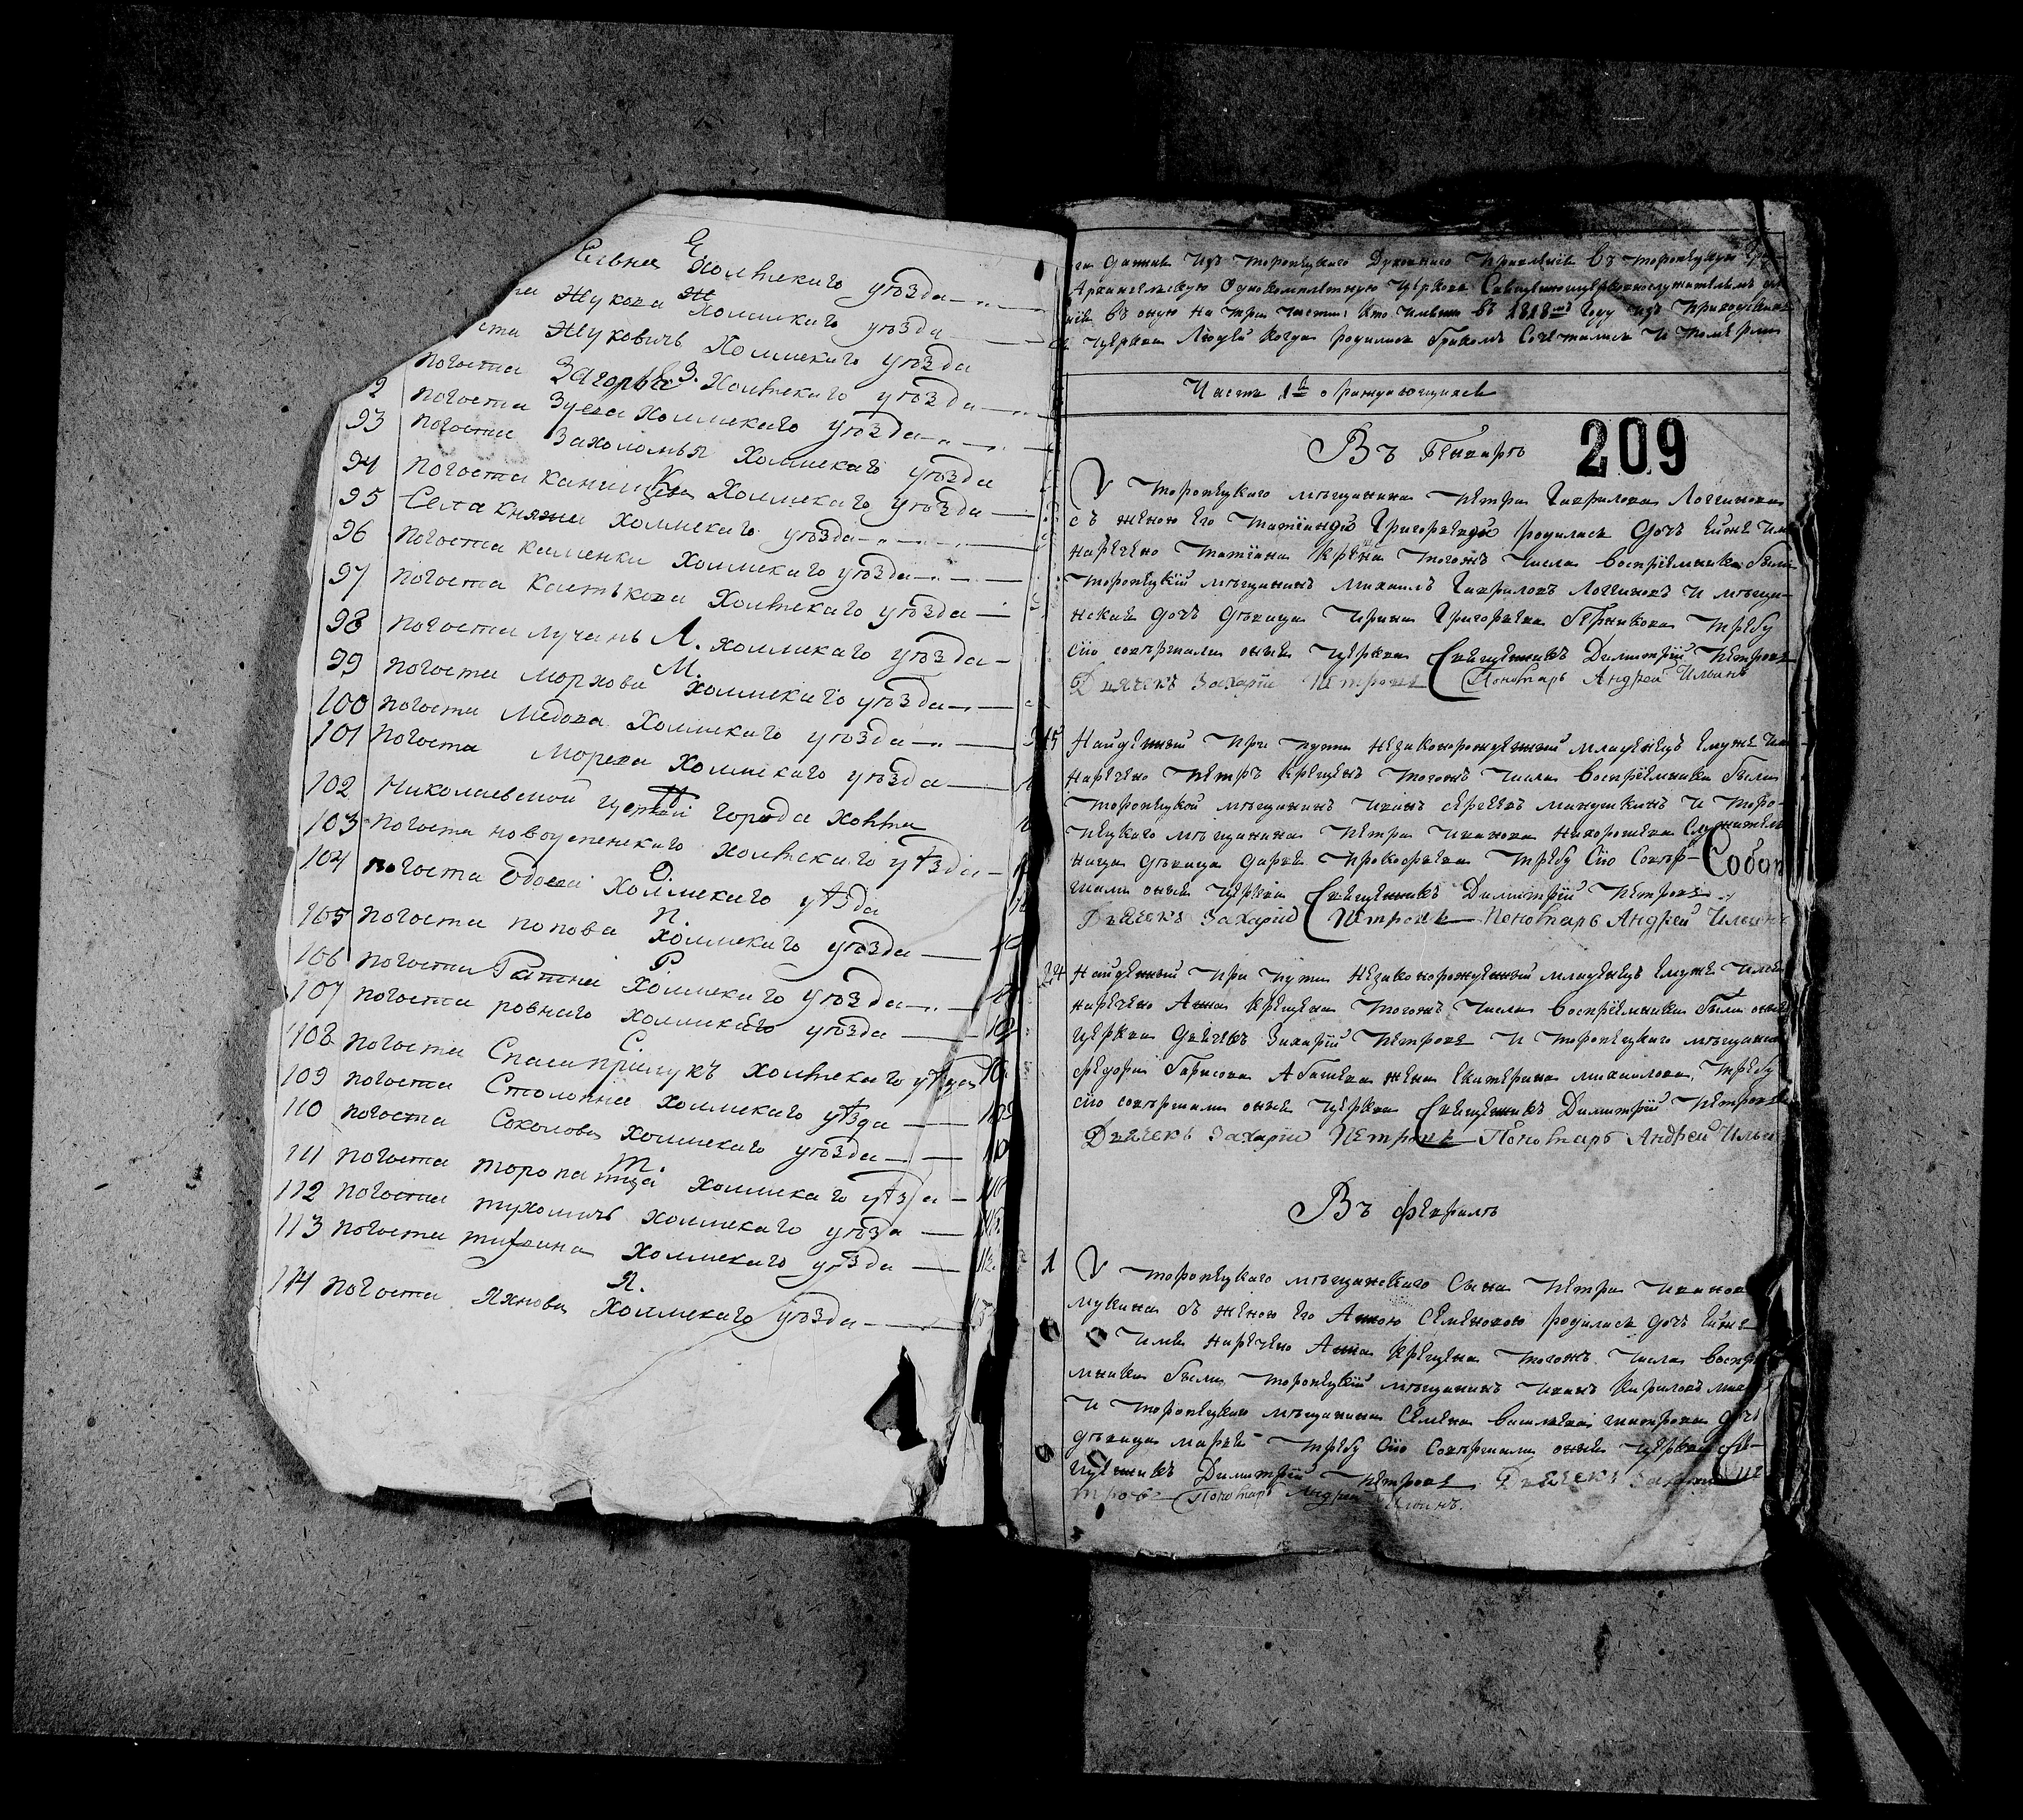 Е
Ельна Холмскаго уѣзда
Ж
Жукова Холмскаго уѣзда
Жуковичь Холмскаго уѣзда
З.
погоста Загорье Холмскаго уѣзда
2 погоста Зуева Холмскаго уѣзда
93 погоста Захоломья Холмскаго уѣзда
К
94 погоста Канищева Холмскаго уѣзда
95 Села княжа Холмскаго уѣзда
96 погоста каменки Холмскаго уѣзда
97 погоста Каменькова Холмскаго уѣзда
Л.
98 погоста лучань холмскаго уѣзда
М.
99 погоста Морхова холмскаго уѣзда
100 погоста Медова Холмскаго уѣзда
101 погоста Морева Холмскаго уѣзда
Н
102 Николаевской церкви города холма
103 погоста новоуспенскаго холмскаго уѣзда
О.
104 погоста Одоева Холмскаго уѣзда
П.
105 погоста попова Холмскаго уѣзда
Р
106 погоста Ратна Холмскаго уѣзда
107 погоста ровнаго холмскаго уѣзда
С.
108 погоста Спасаприлукъ холмскаго уѣзда
109 погоста Столопна холмскаго уѣзда
110 погоста Соколова холмскаго уѣзда
Т.
111 погоста торопатца холмскаго уѣзда
112 погоста тухомичь холмскаго уѣзда
113 погоста тифина Холмскаго уѣзда
Я.
114 погоста Яхнова Холмскаго уѣзда
дана изъ торопецкаго Духовнаго правленія въ торопецкую
Архангельскую Однокомплетную церковь Священноцерковнослужителямъ
въ оную на три части: кто имянно въ 1818мъ году изъ приходскихъ
церкви людей когда родились бракомъ Сочетались и померли
Часть 1я о раждающихся
Въ Генварѣ
209
У торопецкаго мѣщанина петра Гаврилова Логинова
съ женою его татіаною Григорьевою родилась дочь ейже имя
наречено татіана крещена тогожъ числа воспріемники были
торопецкій мѣщанинъ михаилъ Гавриловъ Логиновъ и мѣщан-
ская дочь дѣвица Ирина Григорьева требу
сію совершали оныя церкви Священникъ Димитрій петровъ
Дьячекъ Захарій петровъ Пономарь Андрей Ильинъ
15 Найденный при пути незаконорожденный младенецъ емуже имя
наречено петръ крещенъ тогожъ числа воспріемники были
торопецкой мѣщанинъ иванъ сергеевъ миндушкинъ и торо-
пецкаго мѣщанина петра иванова нахорошева Служитель
ница дѣвица дарья прокофьева требу сію совер-
Собор
шали оныя церкви Священникъ Димитрій петровъ
Дьячекъ Захарій Петровъ Пономарь Андрей Ильинъ
24 Найденный при пути незаконорожденный младенецъ емуже имя
наречено Анна крещена тогожъ числа воспріемники были оныя
церкви дьячекъ Захарій петровъ и торопецкаго мѣщанина
федора борисова Абашева жена екатерина михаилова, требу
сію совершали оныя церкви Священникъ Димитрій петровъ
Дьячекъ Захарій петровъ Пономарь Андрей Ильинъ
Въ февралѣ
1 У торопецкаго мѣщанскаго сына петра иванова
мукина съ женою его Анною Семеновою родилась дочь ейже
имя наречено Анна крещена тогожъ числа воспріе
мники были торопецкій мѣщанинъ иванъ кириловъ
и торопецкаго мѣщанина семена васильева дочь
дѣвица марья требу сію совершали оныя церкви Свя-
щенникъ Димитрій петровъ Дьячекъ Захарій Пе
тровъ Пономарь Андрей Ильинъ.